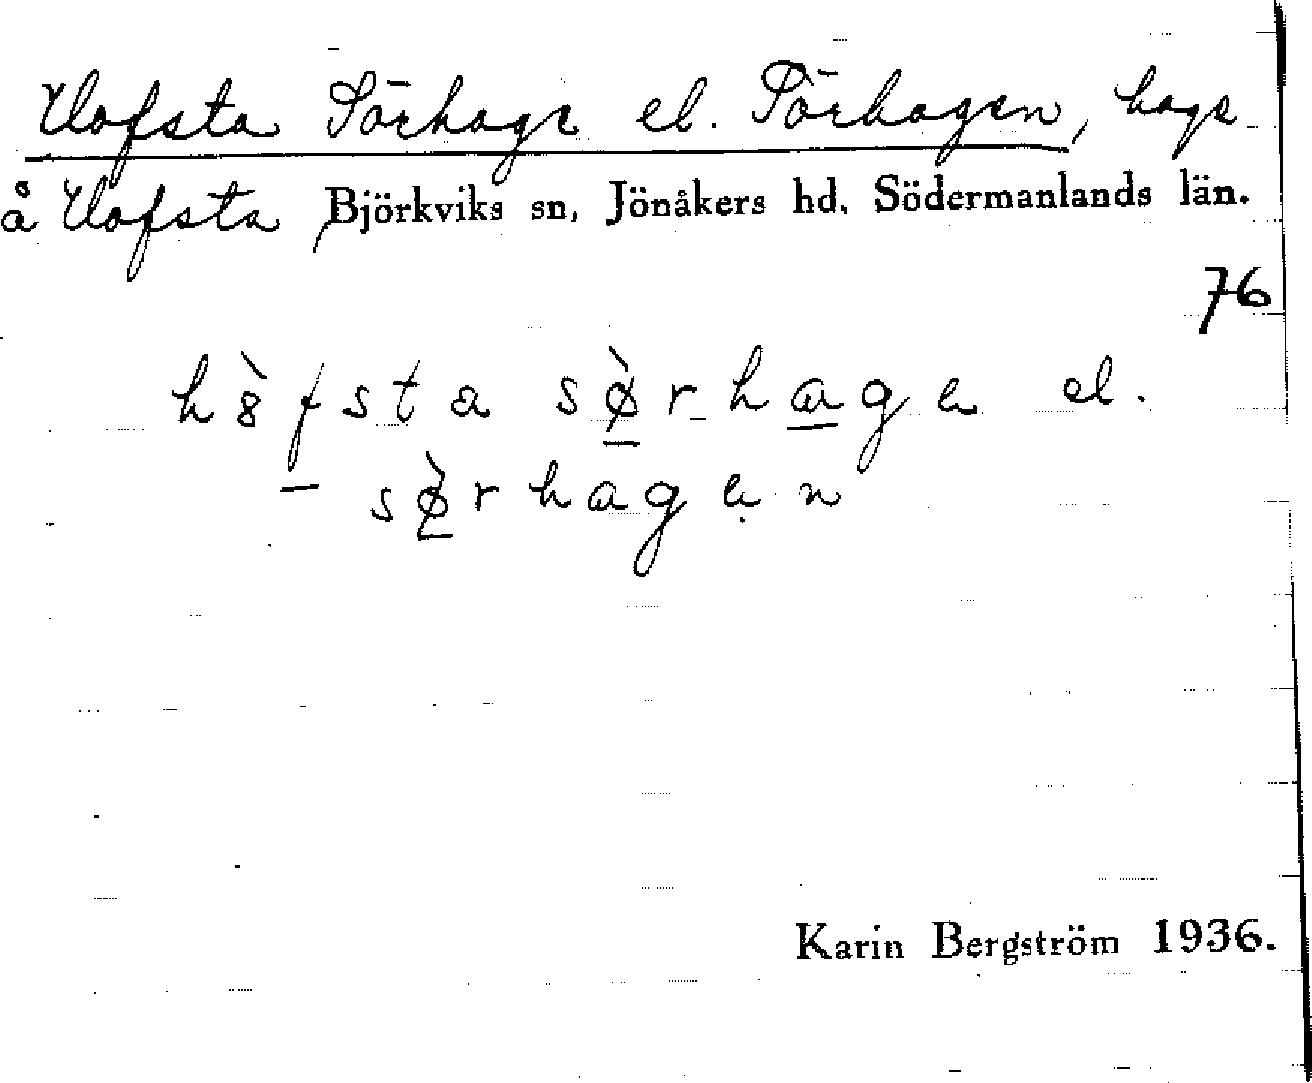 Hofsta Sörhage el. Sörhagen, hage
å Hofsta, Björkviks sn, Jönåkers hd. Södermanlands län.
76
h8̀fsta sø̱̀rha̱ge el.
– sø̱̀rhagẹn
Karin Bergström 1936.